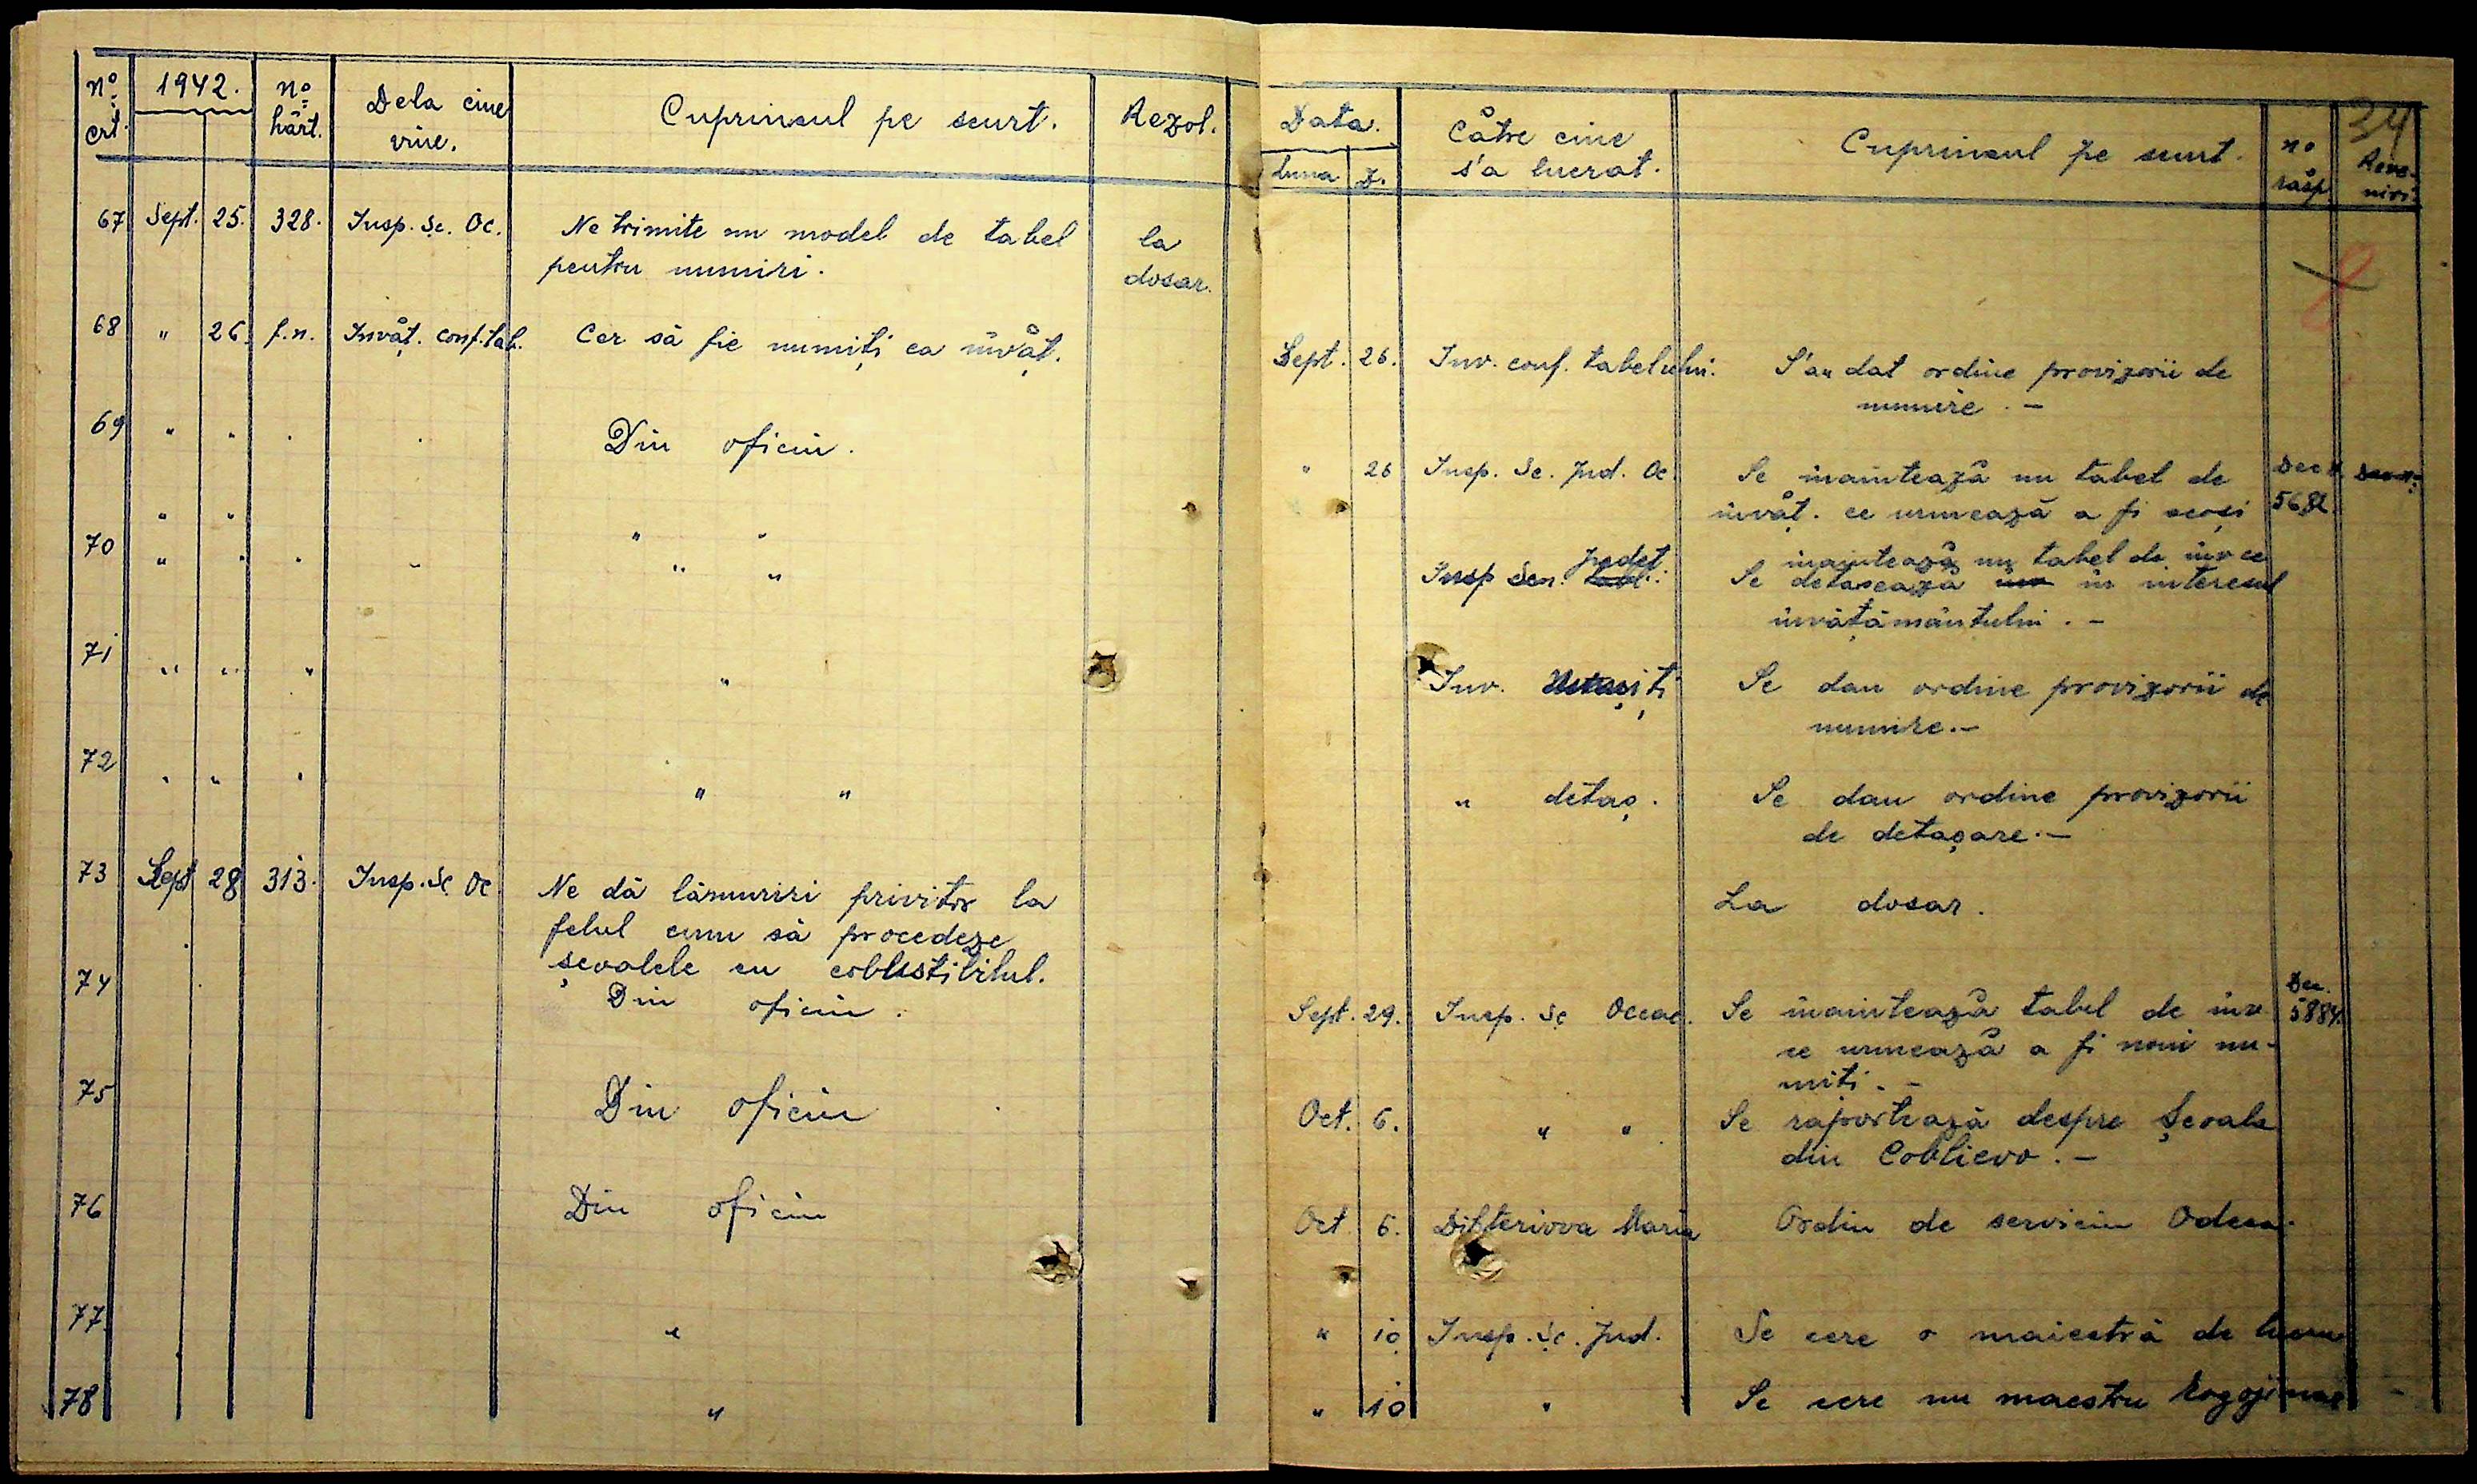 No crt. 1942. No hârt. Dela cine vine. Cuprinsul pe scurt. Rezol.
67 Sept. 25. 328. Insp. Șc. Oc. Ne trimite un model de tabel la
pentru numiri. dosar.
68 " 26. f.n. Învăț. conf. tab. Cer să fie numiți ca învăț.
69 " " Din oficiu.
" "
70 " " " "
71 " " " "
72 " " " "
73 Sept 28 313. Insp. Șc Oc Ne dă lămuriri privitor la
felul cum să procedeze
școalele cu
74 Din oficiu.
75 Din oficiu
76 Din oficiu
77. "
78 "
34
Data. Luna Z. Către cine s'a lucrat. Cuprinsul pe scurt. no răsp Reveniri
Sept. 26. Inv. conf. tabelului. S'au dat ordine provizorii de
numire. -
" 26 Insp. Șc. Jud. Oc. Se înaintează un tabel de
învăț. ce urmează a fi scoși 5682.
Județ înaintează un tabel de înv ce
Insp Se detașează în interesul
învățământului. -
Inv. Se dau ordine provizorii de
numire. -
" detaș. Se dau ordine provizorii
de detașare. -
La dosar.
Sept. 29. Insp. Șc Oceac. Se înaintează tabel de înv Dec. 5884.
ce urmează a fi noui nu-
miți. -
Oct. 6. " " Se raportează despre Școala
din Coblievo. -
Oct 6. Maria Ordin de serviciu Odesa.
" 10 Insp. Șc. Jud. Se cere o maiestră de lucru
" 10 " Se cere un maestru rogojinar -